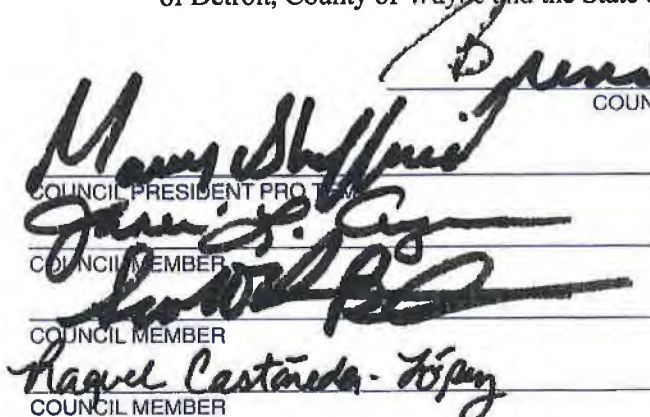 of Detroit, County of Wayne and the State
Bren
COUN
Mary Sheffield
COUNCIL PRESIDENT PRO TEM
L.
COUNCIL MEMBER
COUNCIL MEMBER
Raquel Castañeda-López
COUNCIL MEMBER